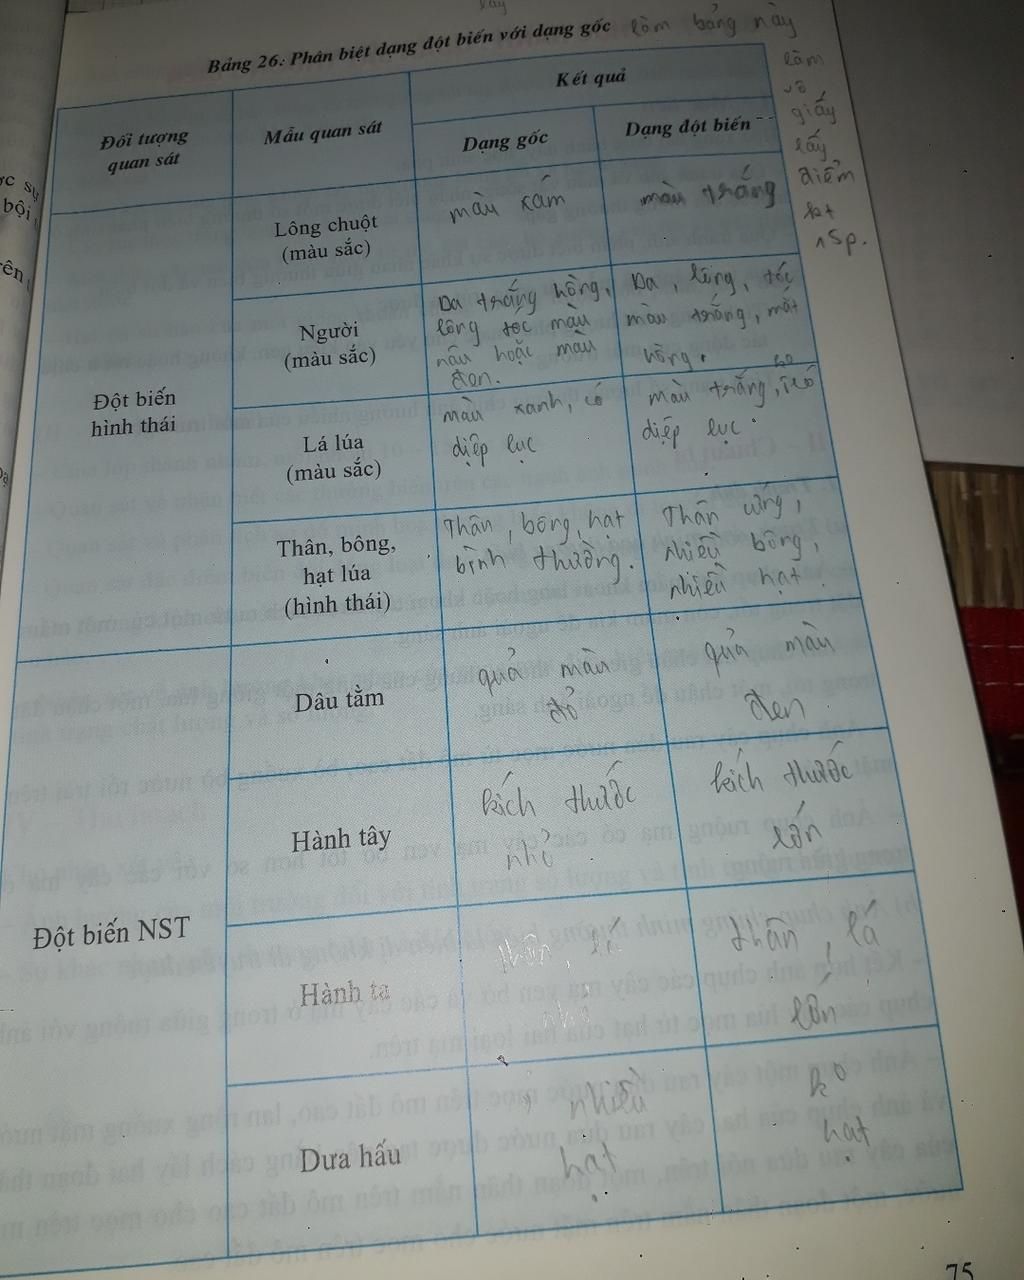 vậy
Bảng 26: Phân biệt dạng đột biến với dạng gốc làm bảng này
làm
vô
giấy
lấy
điểm
kt
15p.
Đối tượng
quan sát
Mẫu quan sát
Kết quả
Dạng gốc
Dạng đột biến
Đột biến
hình thái
Lông chuột
(màu sắc)
màu xám
màu trắng
Người
(màu sắc)
Da trắng hồng,
lông tóc màu
nâu hoặc màu
đen.
Da, lông, tóc
màu trắng, mắt
hồng.
Lá lúa
(màu sắc)
màu xanh, có
diệp lục
màu trắng, ko có
diệp lục.
Thân, bông,
hạt lúa
(hình thái)
Thân, bông hạt
bình thường.
Thân cứng,
nhiều bông,
nhiều hạt
Đột biến NST
Dâu tằm
quả màu
đỏ
quả màu
đen
Hành tây
kích thước
nhỏ
kích thước
lớn
Hành ta
thân, lá
nhỏ
thân, lá
lớn
Dưa hấu
nhiều
hạt
ko
hạt
75